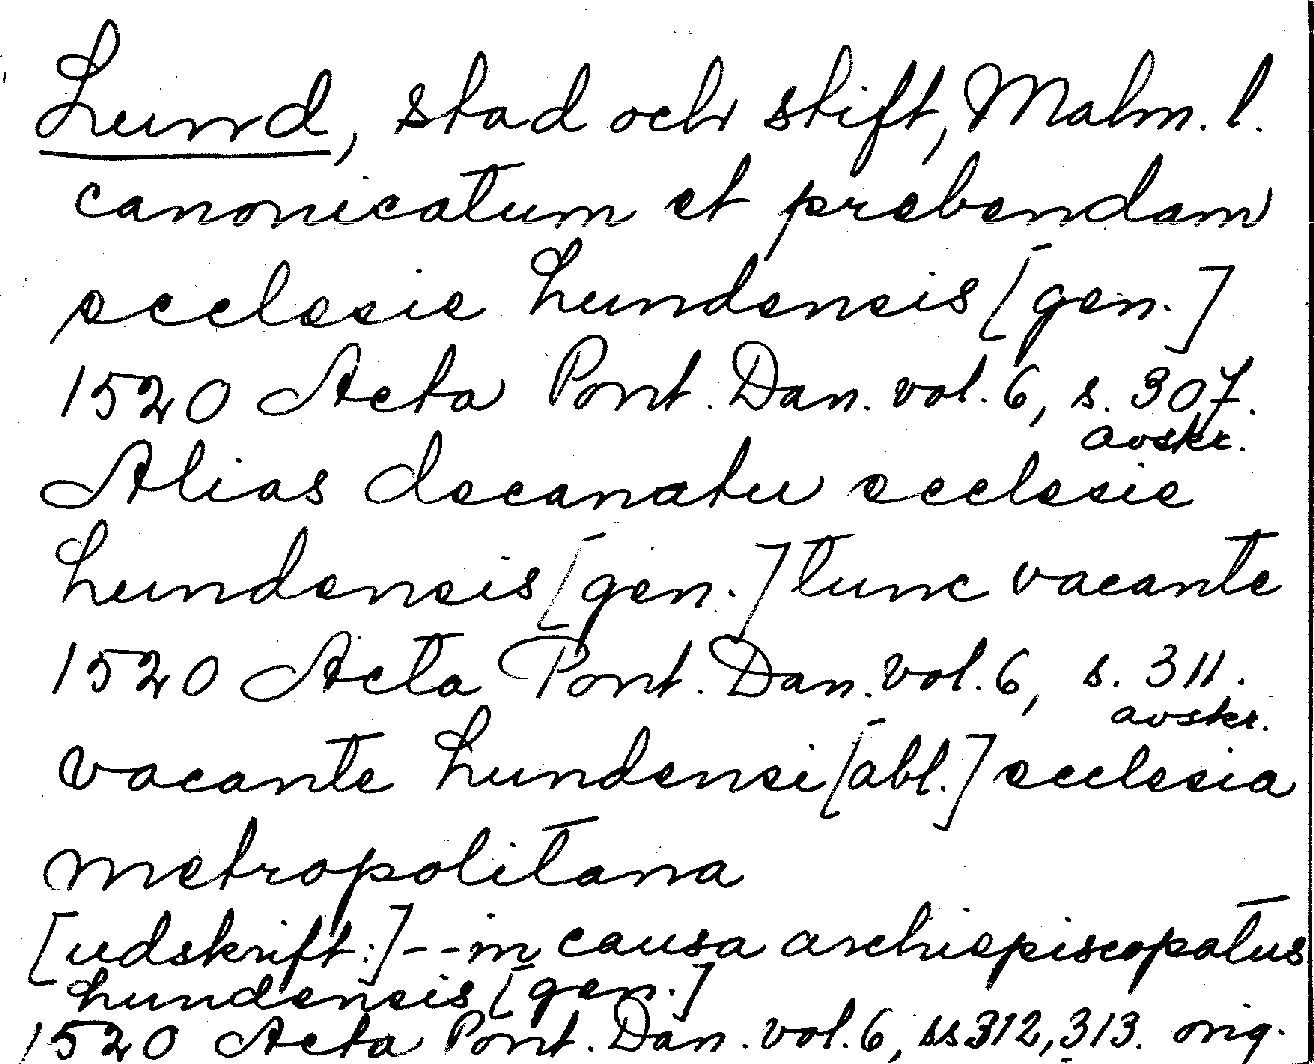 Lund, stad och stift, Malm. l.
canonicatum et prebendam
ecclesie Lundensis [gen.]
1520 Acta Pont. Dan. vol. 6, s. 307.
avskr.
Alias decanatu ecclesie
Lundensis [gen.] tunc vacante
1520 Acta Pont. Dan. vol. 6, s. 311.
avskr.
vacante Lundensi [abl.] ecclesia
metropolitana
[udskrift:] -- in causa archiepiscopatus
Lundensis [gen.]
1520 Acta Pont. Dan. vol. 6, ss 312, 313. orig.